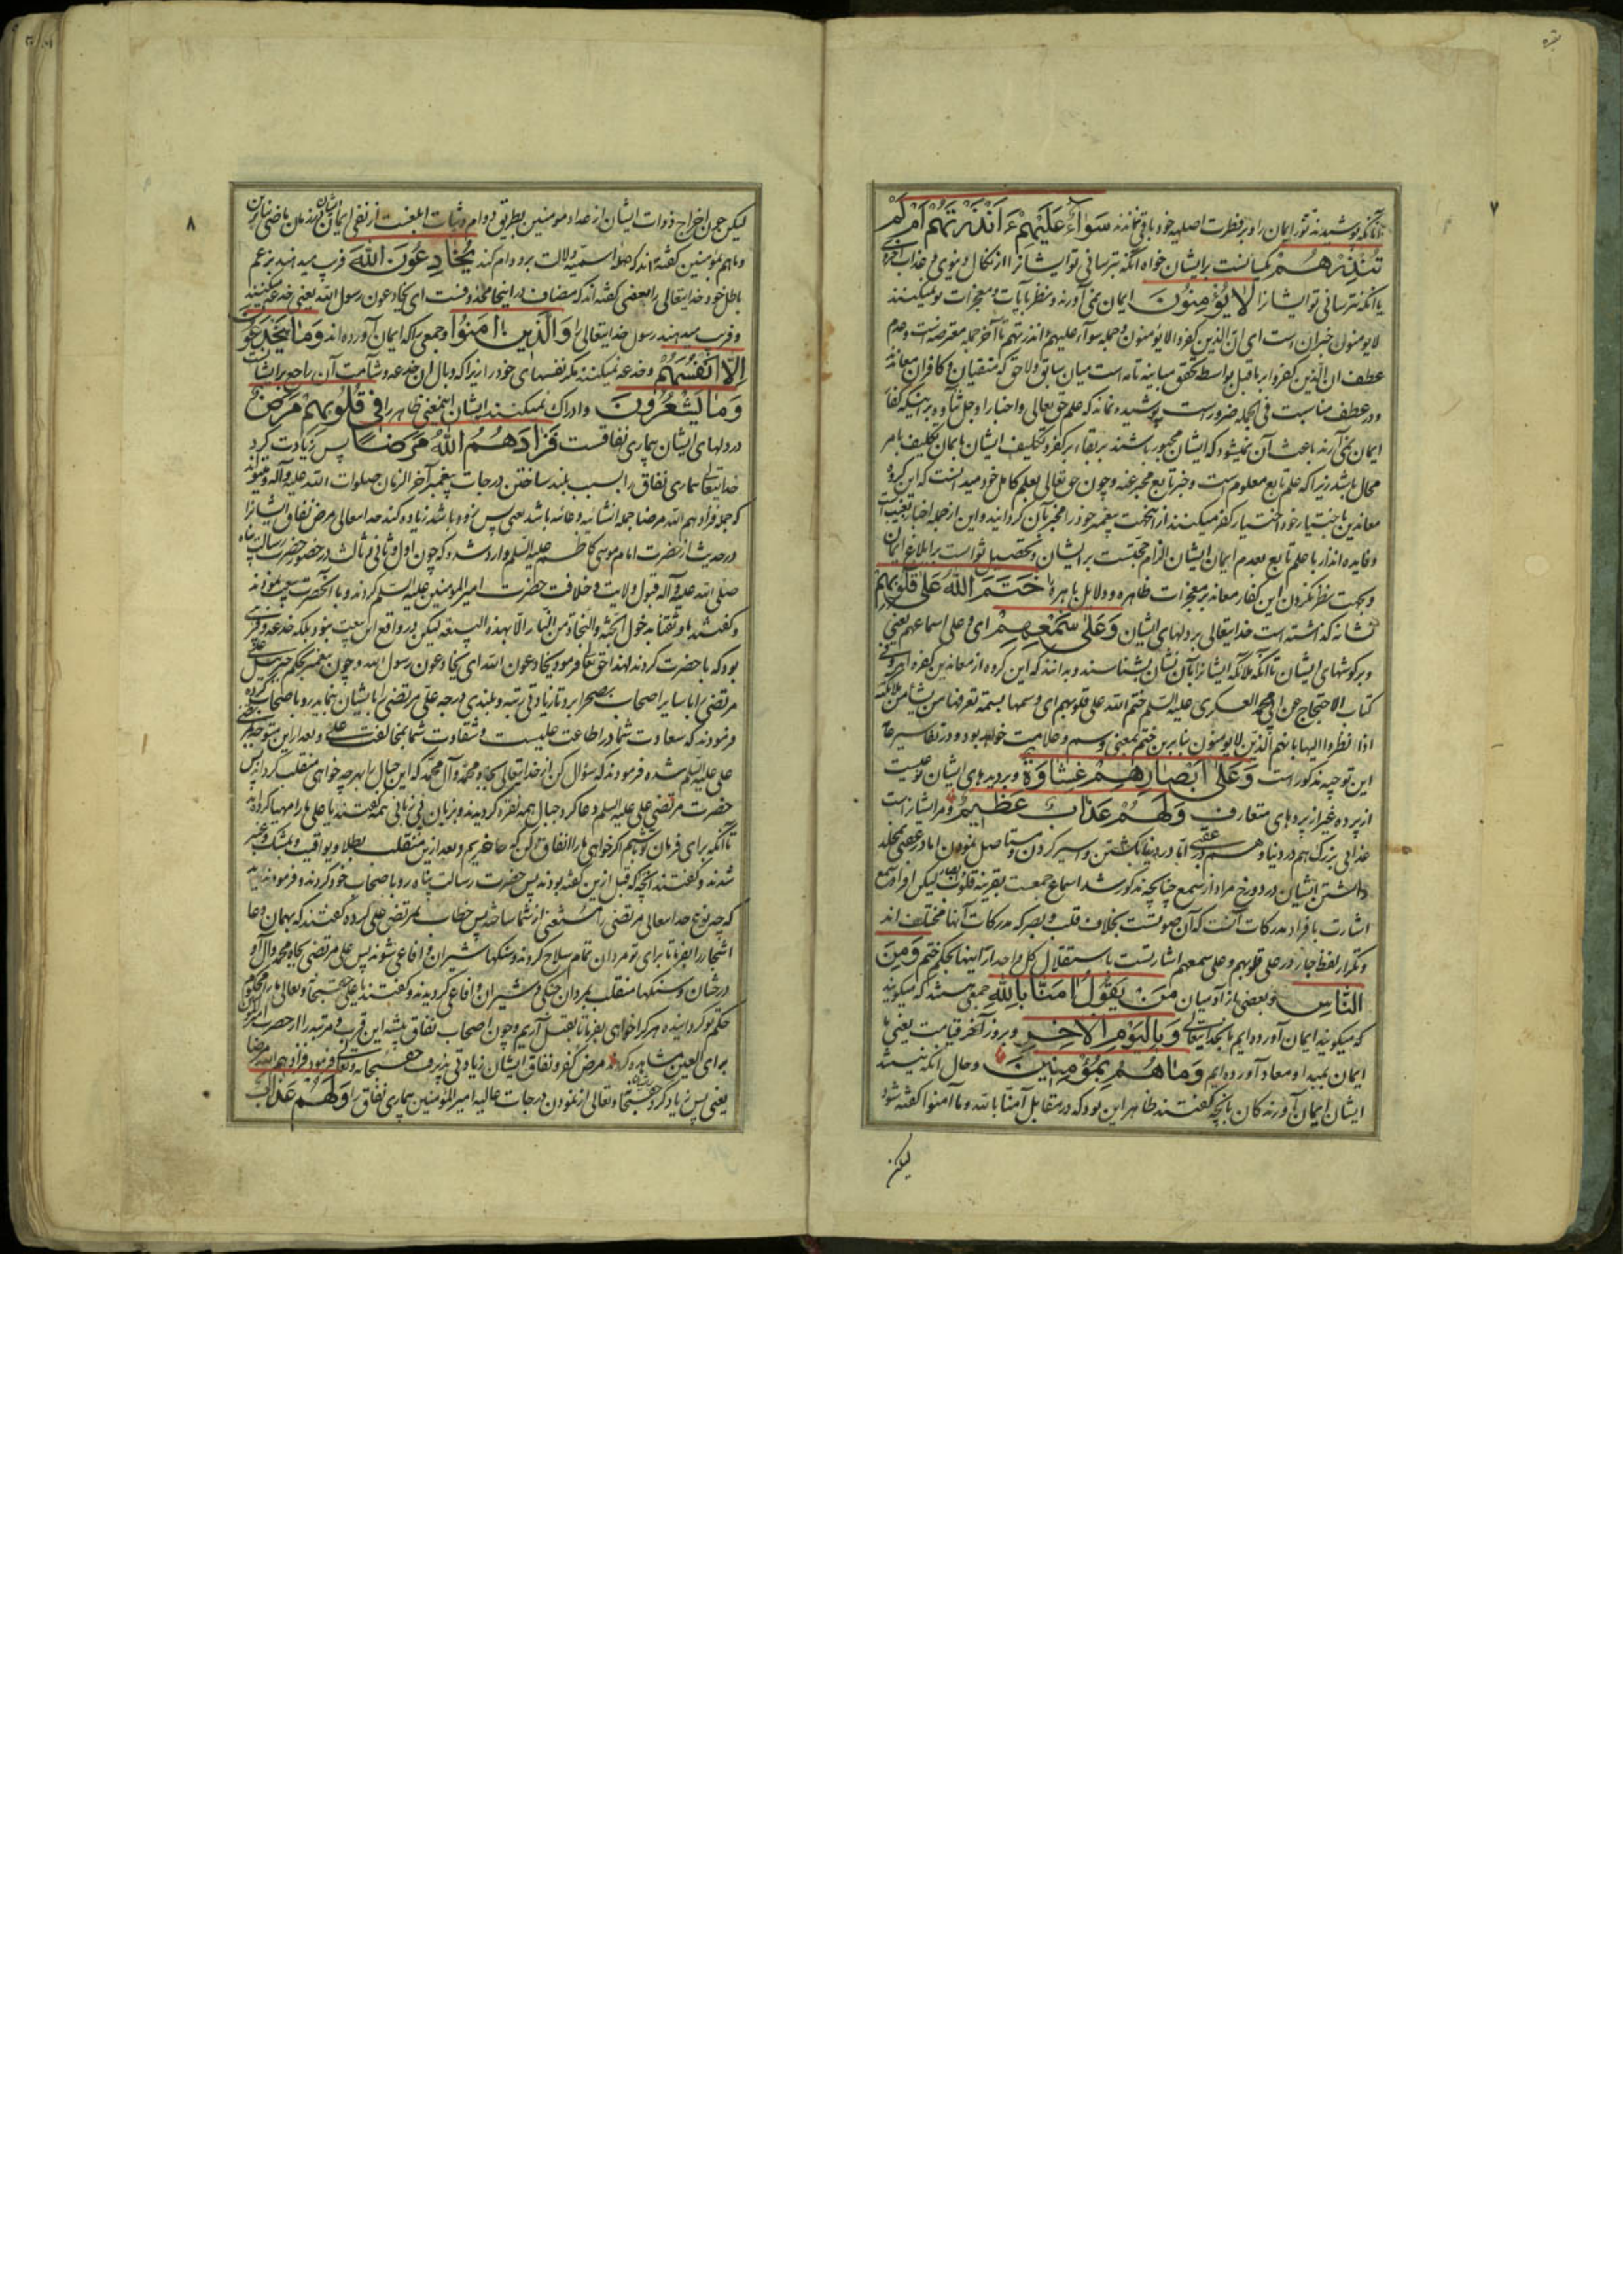 بقره
۷
تا آنکه پوشیدند نور ایمان را و بر فطرت اصلیه خود باقی نماندند سَوَآءٌ عَلَيْهِمْ ءَاَنْذَرْتَهُمْ اَمْ لَمْ
تُنْذِرْهُمْ یکسانست بر ایشان خواه آنکه بترسانی تو ایشانرا از نکال دنیوی و عذاب اخروی
یا آنکه نترسانی تو ایشانرا لَا يُؤْمِنُونَ ایمان نمی آورند و نظر بآیات و معجزات تو نمیکنند
لایومنون خبر ان است ای ان الذین کفروا لایؤمنون و جمله سوآء علیهم ءانذرتهم تا آخر جمله معترضه است و عدم
عطف ان الذین کفروا بر ماقبل بواسطه تحقق مباینه تامه است میان سابق و لاحق که متقیان و کافران معاندند
و در عطف مناسبت فی الجمله ضرور است پوشیده نماند که علم حق تعالی و اخبار او جل شأنه بر اینکه کفار
ایمان نمی آرند باعث آن نمیشود که ایشان مجبور باشند بر بقاء بر کفر و تکلیف ایشان بایمان تکلیف بامر
محال باشد زیرا که علم تابع معلوم است و خبر تابع مخبر عنه و چون حق تعالی بعلم کامل خود میدانست که این گروه
معاندین باختیار خود اختیار کفر میکنند از اینجهت پیغمبر خود را مخبر بآن گردانید و این از جمله اخبار بغیب است
و فایده انذار با علم تابع بعدم ایمان ایشان الزام حجتست بر ایشان و تحصیل ثوابست بر ابلاغ ایمان
و بجهت نظر نکردن این کفار معاند بر معجزات ظاهره و دلایل باهره خَتَمَ اللّٰهُ عَلٰى قُلُوبِهِمْ
نشانه گذاشته است خدایتعالی بر دلهای ایشان وَعَلٰى سَمْعِهِمْ ای و علی اسماعهم یعنی
و بر گوشهای ایشان تا آنکه ملائکه ایشانرا بآن نشان بشناسند و بدانند که این گروه از معاندین کفره اند
کتاب الاحتجاج عن ابی محمد العسکری علیه السلم ختم الله علی قلوبهم ای وسمها بسمة تعرفها من یشاء من ملائکته
اذا نظروا الیها بانهم الذین لایومنون بنابرین ختم بمعنی وسم و علامت خواهد بود و در تفاسیر عامه
این توجیه مذکور است وَعَلٰى اَبْصَارِهِمْ غِشَاوَةٌ و بر دیدهای ایشان نوعیست
از پرده غیر از پردهای متعارف وَلَهُمْ عَذَابٌ عَظِيمٌ و مر ایشانراست
عذابی بزرگ هم در دنیا و هم در عقبی اما در دنیا بکشتن و اسیر کردن و مستاصل نمودن اما در عقبی بمخلد
داشتن ایشان در دوزخ مراد از سمع چنانچه مذکور شد اسماع جمعست بقرینه قلوب لیکن افراد سمع
اشارت بافراد مدرکات آنست که آن صوتست بخلاف قلب و بصر که مدرکات آنها مختلف اند
و تکرار لفظ جار در علی قلوبهم و علی سمعهم اشارتست باستقلال کل واحد از اینها بحکم ختم وَمِنَ
النَّاسِ و بعضی از آدمیان مَنْ يَقُولُ اٰمَنَّا بِاللّٰهِ جمعی هستند که میگویند
که میگویند ایمان آورده ایم بخدایتعالی وَبِالْيَوْمِ الْاٰخِرِ و بروز آخر قیامت یعنی با
ایمان بمبدا و معاد آورده ایم وَمَا هُمْ بِمُؤْمِنِينَ و حال آنکه نیستند
ایشان ایمان آورندگان بآنچه گفتند ظاهر این بود که در مقابل آمنا بالله و ما آمنوا گفته شود
لیکن
۸
لیکن چون اخراج ذوات ایشان از عداد مؤمنین بطریق دوام و ثبات ابلغست از نفی ایمان ایشان در زمان ماضی بنابرین
و ما هم بمؤمنین گفته اند که جمله اسمیه دلالت بر دوام کند يُخَادِعُونَ اللّٰهَ فریب میدهند بزعم
باطل خود خدایتعالی را بعضی گفته اند که مضاف در اینجا محذوفست ای یخادعون رسول الله یعنی خدعه میکنند
و فریب میدهند رسول خدایتعالی را وَالَّذِينَ اٰمَنُوا و جمعی را که ایمان آورده اند وَمَا يَخْدَعُونَ
اِلَّا اَنْفُسَهُمْ و خدعه نمیکنند مگر نفسهای خود را زیرا که وبال آن خدعه و شآمت آن راجع بر ایشانست
وَمَا يَشْعُرُونَ و ادراک نمیکنند ایشان اینمعنی ظاهر را فِى قُلُوبِهِمْ مَرَضٌ
در دلهای ایشان بیماری نفاقست فَزَادَهُمُ اللّٰهُ مَرَضًا پس زیادت کرد
خدایتعالی بیماری نفاق را بسبب بلند ساختن درجات پیغمبر آخر الزمان صلوات الله علیه و آله و میتواند
که جمله فزادهم الله مرضا جمله انشائیه دعائیه باشد یعنی پس زود باشد زیاده کند خدایتعالی مرض نفاق ایشانرا
در حدیث از حضرت امام موسی کاظم علیه السلم وارد شده که چون اول و ثانی و ثالث در حضور حضرت رسالت پناه
صلی الله علیه و آله قبول ولایت و خلافت حضرت امیرالمؤمنین علیه السلم کردند و با آنحضرت بیعت نمودند
و گفتند ما وثقنا بدخول الجنة والنجاة من النار الا بهذه البیعة لیکن در واقع این بیعت نبود بلکه خدعه و فریبی
بود که با حضرت کردند لهذا حق تعالی فرمود یخادعون الله ای یخادعون رسول الله و چون پیغمبر بحکم جبرئیل علی
مرتضی را با سایر اصحاب بصحرا برد تا زیادتی رتبه و بلندی درجه علی مرتضی را بایشان بنماید رو با صحاب کرده
فرمودند که سعادت شما در اطاعت علیست و شقاوت شما بمخالفت علی و بعد از این متوجه
علی علیه السلم شده فرمودند که سؤال کن از خدایتعالی بجاه محمد و آل محمد که این جبال را بهرچه خواهی منقلب گرداند پس
حضرت مرتضی علی علیه السلم دعا کرد جبال همه نقره گردیدند و بزبان بی زبانی همه گفتند یا علی ما را مهیا کرده اند
تا آنکه برای فرمان تو باشیم اگر خواهی ما را انفاق کن که حاضریم و بعد ازین منقلب بطلا و یواقیت و بمشک و عنبر
شدند و گفتند آنچه که قبل ازین گفته بودند پس حضرت رسالت پناه رو با صحاب خود کردند و فرمودند
که چه نوع خدایتعالی مرتضی را مستغنی از شما ساخته پس خطاب بمرتضی علی کرده گفتند که بهمان دعا
اشجار را بفرما تا برای تو مردان تمام سلاح گردند و سنگها شیران و افاعی شوند پس علی مرتضی بجاه محمد و آل او
درختان و سنگها منقلب بمردان جنگی و شیران و افاعی گردیدند و گفتند یا علی حق سبحانه و تعالی ما را محکوم
حکم تو گردانیده هر کرا خواهی بفرما تا بقتل آریم و چون اصحاب نفاق پیشه این قرب و مرتبه را از حضرت امیرالمؤمنین
برای العین مشاهده کردند مرض کفر و نفاق ایشان زیادتی پذیرفت حق سبحانه و تعالی فرمود فزادهم الله مرضا
یعنی پس زیاد کرد حق سبحانه و تعالی از نمودن درجات عالیه امیرالمؤمنین بیماری نفاق را وَلَهُمْ عَذَابٌ